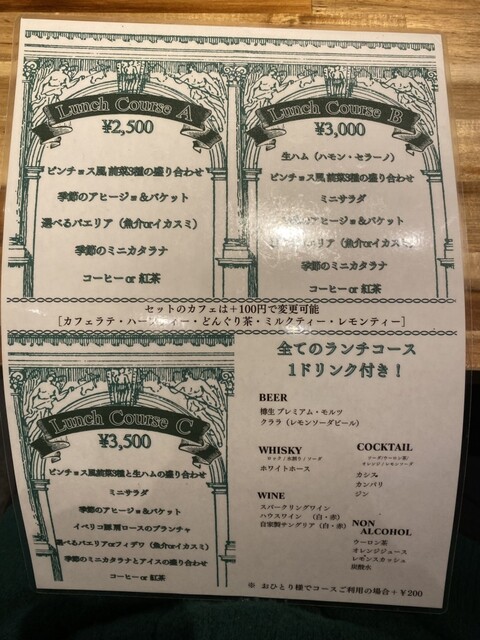 Lunch Course A
¥2,500
ピンチョス風前菜3種の盛り合わせ
季節のアヒージョ&バケット
選べるパエリア（魚介orイカスミ）
季節のミニカタラナ
コーヒー or 紅茶
Lunch Course B
¥3,000
生ハム（ハモン・セラーノ）
ピンチョス風前菜3種の盛り合わせ
ミニサラダ
アヒージョ&バケット
パエリア（魚介orイカスミ）
季節のミニカタラナ
コーヒー or 紅茶
セットのカフェは+100円で変更可能
[カフェラテ・ハーブティー・どんぐり茶・ミルクティー・レモンティー]
Lunch Course C
¥3,500
ピンチョス風前菜3種と生ハムの盛り合わせ
ミニサラダ
季節のアヒージョ&バケット
イベリコ豚肩ロースのプランチャ
選べるパエリアorフィデワ（魚介orイカスミ）
季節のミニカタラナとアイスの盛り合わせ
コーヒー or 紅茶
全てのランチコース
1ドリンク付き！
BEER
樽生 プレミアム・モルツ
クララ（レモンソーダビール）
WHISKY
ロック/水割り/ソーダ
ホワイトホース
COCKTAIL
ソーダ/ウーロン茶/
オレンジ/レモンソーダ
カシス
カンパリ
ジン
WINE
スパークリングワイン
ハウスワイン （白・赤）
自家製サングリア（白・赤）
NON
ALCOHOL
ウーロン茶
オレンジジュース
レモンスカッシュ
炭酸水
※ おひとり様でコースご利用の場合+¥200